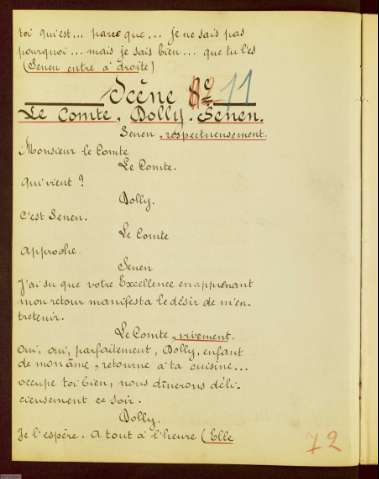 toi qui est... parce que... je ne sais pas
pourquoi... mais je sais bien... que tu l'es
(Senen entre à droite)
Scène 8e 11
Le Comte, Dolly. Senen.
Senen, respectueusement.
Monsieur le Comte
Le Comte.
Qui vient ?
Dolly.
C'est Senen.
Le Comte
Approche
Senen
J'ai su que votre Excellence en apprenant
mon retour manifesta le désir de m'en-
tretenir.
Le Comte, vivement.
Oui, oui, parfaitement, Dolly, enfant
de mon âme, retourne à ta cuisine...
occupe toi bien, nous dînerons déli-
cieusement ce soir.
Dolly.
Je l'espère. A tout à l'heure (Elle
72